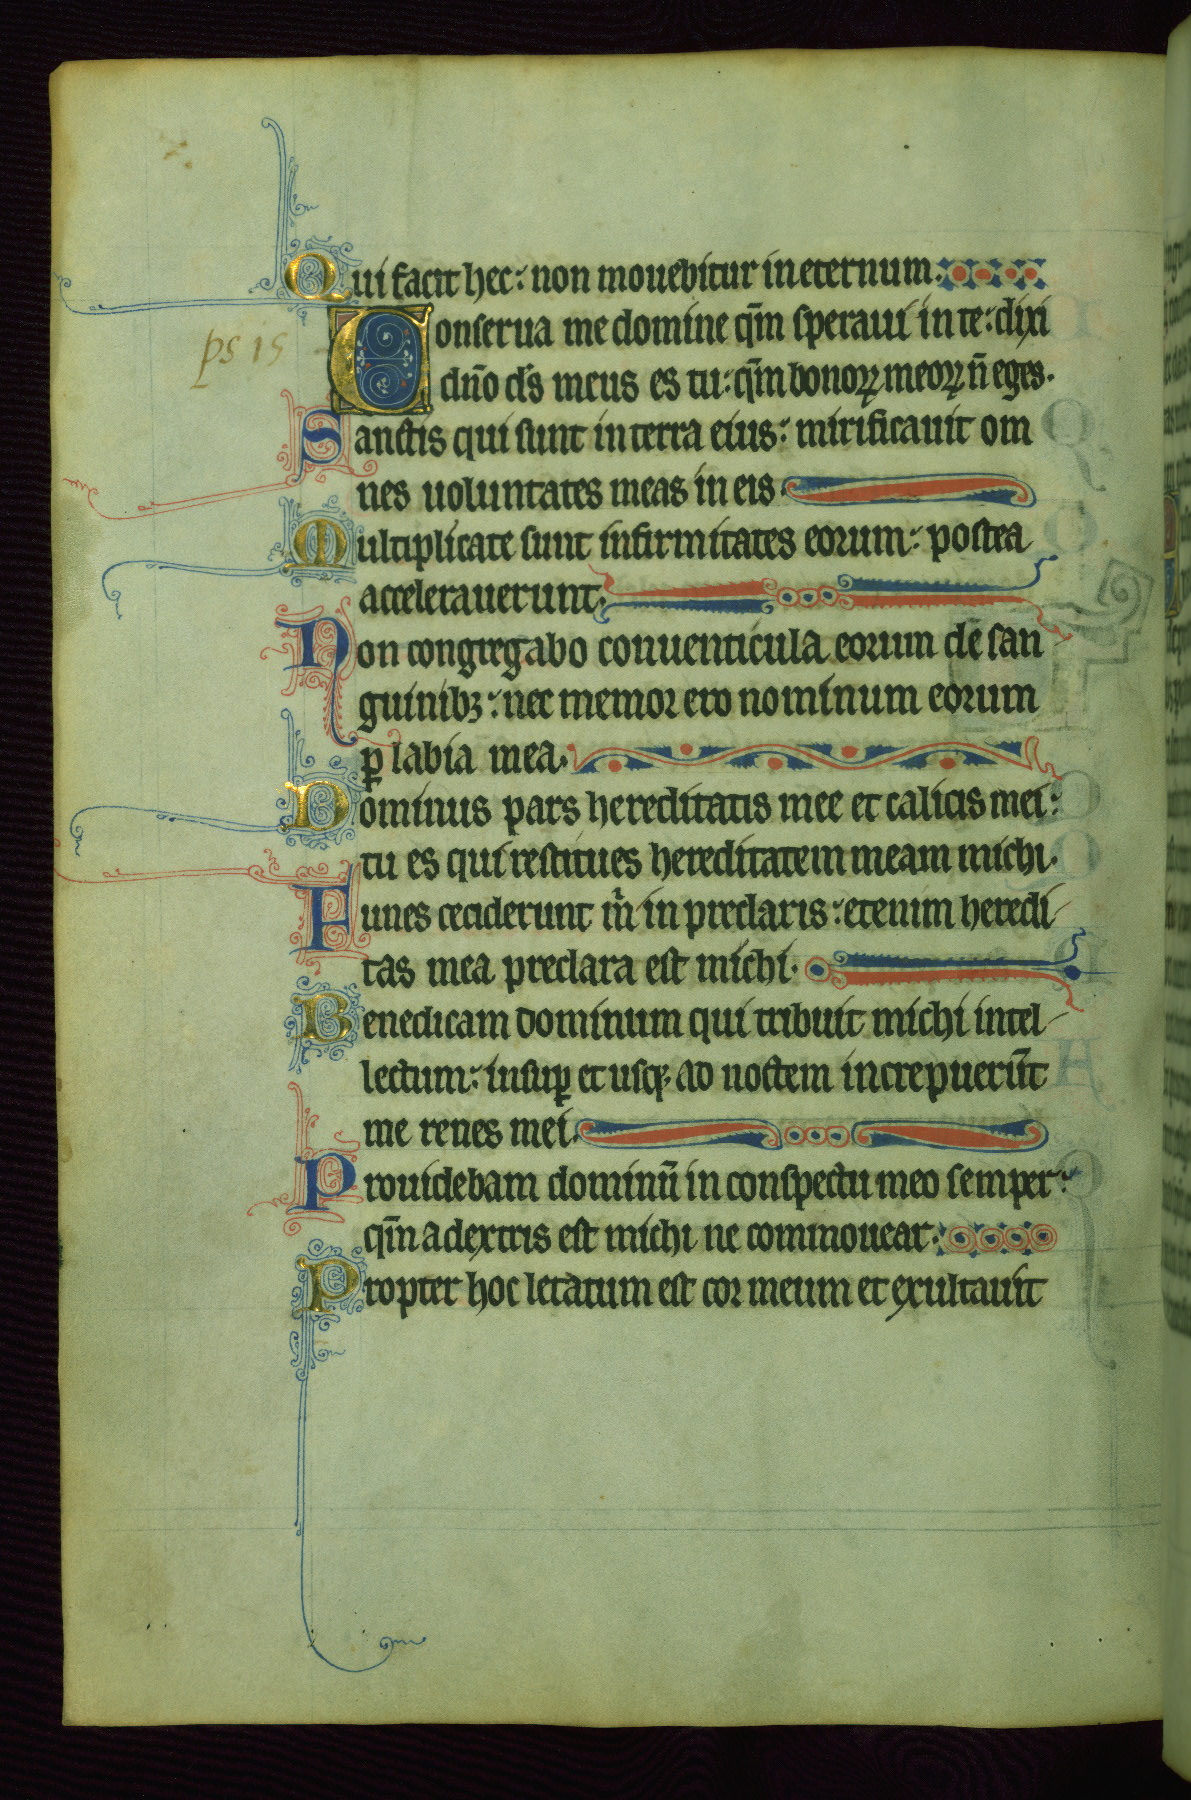 Qui facit hec: non mouebitur in eternum.
ps 15
Conserua me domine qm̄ speraui in te: dixi
dño ds̄ meus es tu: qm̄ bonoꝝ meoꝝ ñ eges.
Sanctis qui sunt in terra eius: mirificauit om
nes uoluntates meas in eis.
Multiplicate sunt infirmitates eorum: postea
accelerauerunt.
Non congregabo conuenticula eorum de san
guinibꝫ: nec memor ero nominum eorum
ꝑ labia mea.
Dominus pars hereditatis mee et calicis mei:
tu es qui restitues hereditatem meam michi.
Funes ceciderunt m̄ in preclaris: etenim heredi
tas mea preclara est michi.
Benedicam dominum qui tribuit michi intel
lectum: insuꝑ et usqꝫ ad noctem increpuerūt
me renes mei.
Prouidebam dominū in conspectu meo semper:
qm̄ a dextris est michi ne commouear.
Propter hoc letatum est cor meum et exultauit